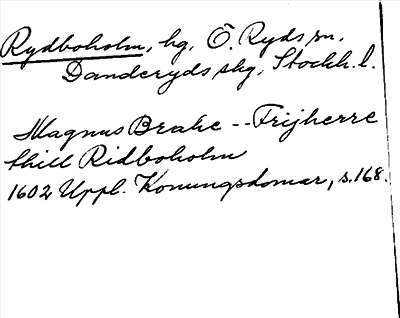 Rydboholm, hg, Ö. Ryds sn,
Danderyds skg, Stockh. l.
Magnus Brahe -- Frijherre
thill Ridboholm
1602 Uppl. Konungsdomar, s. 168.